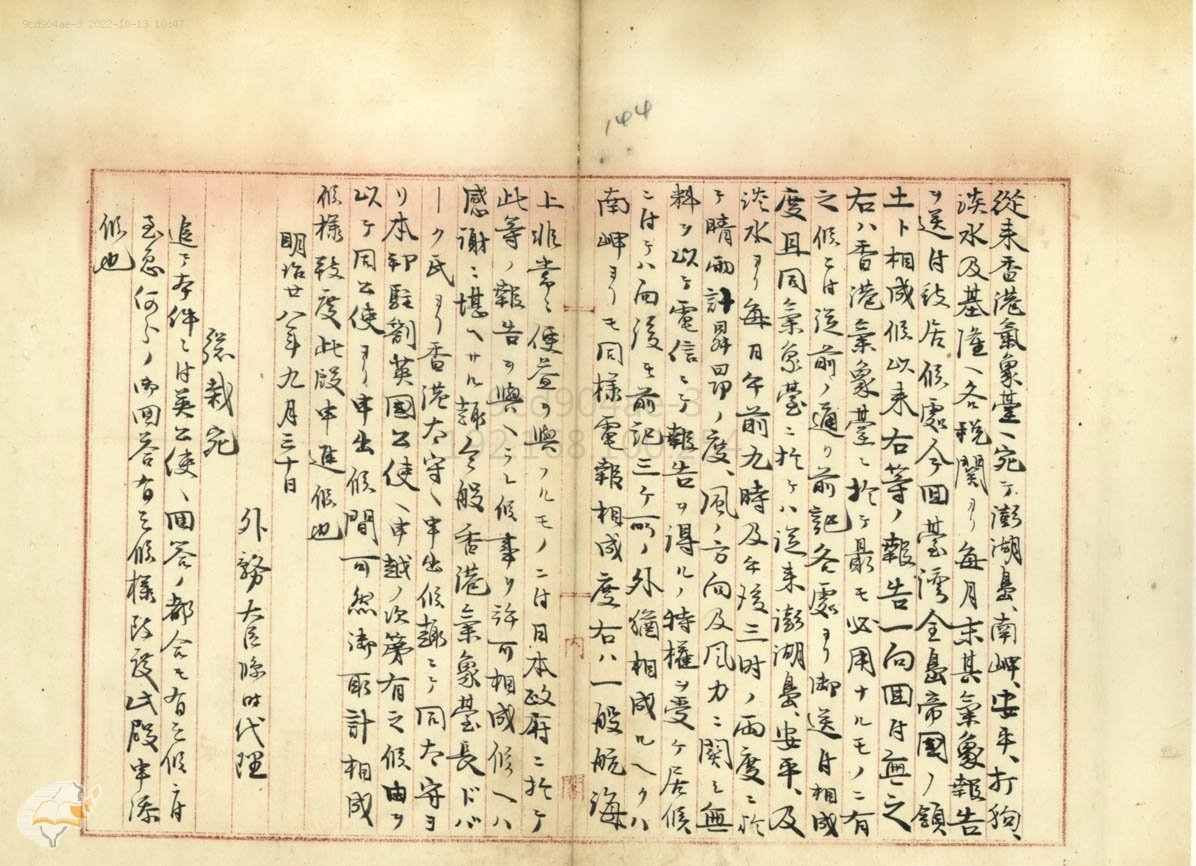 9cd904ae-3 2022-10-13 10:47
144
従来香港氣象臺ヘ宛テ澎湖島、南岬、安平、打狗、
淡水及基隆ノ各税関ヨリ毎月末其氣象報告
ヲ送付致居候處今回臺湾全島帝國ノ領
土ト相成候以来右等ノ報告一向回付無之
右ハ香港氣象臺ニ於テ最モ必用ナルモノニ有
之候ニ付従前ノ通リ前記各處ヨリ御送付相成
度且同氣象臺ニ於テハ従来澎湖島、安平、及
淡水ヨリ毎日午前九時及午後三時ノ両度ニ於
テ晴雨計昇昂ノ度、風ノ方向及風力ニ関シ無
料ヲ以テ電信ニテ報告ヲ得ルノ特権ヲ受ケ居候
ニ付テハ向後モ前記三ケ所ノ外猶相成ルヘクハ
南岬ヨリモ同様電報相成度右ハ一般航海
上非常ニ便益ヲ與フルモノニ付日本政府ニ於テ
此等ノ報告ヲ與ヘラレ候事ヲ許可相成候ヘハ
感謝ニ堪ヘサル趣今般香港氣象臺長ドバ
ーク氏ヨリ香港太守ヘ申出候趣ニテ同太守ヨ
リ本邦駐劄英國公使ヘ申越ノ次第有之候由ヲ
以テ同公使ヨリ申出候間可然御取計相成
候様致度此段申進候也
明治廿八年九月三十日
外務大臣臨時代理
総裁宛
追テ本件ニ付英公使ヘ回答ノ都合モ有之候ニ付
至急何分ノ御回答有之候様致度此段申添
候也
内
閣
9cd904ae-3